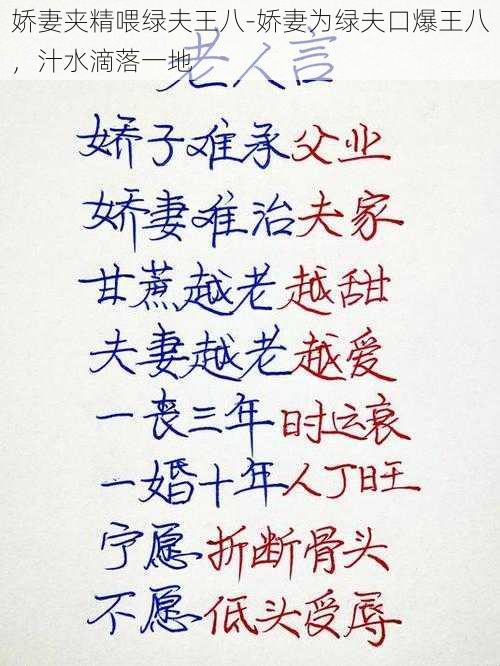 娇妻夹精喂绿夫王八-娇妻为绿夫口爆王八
，汁水滴落一地
老人言
娇子难承父业
娇妻难治夫家
甘蔗越老越甜
夫妻越老越爱
一丧三年时运衰
一婚十年人丁旺
宁愿折断骨头
不愿低头受辱